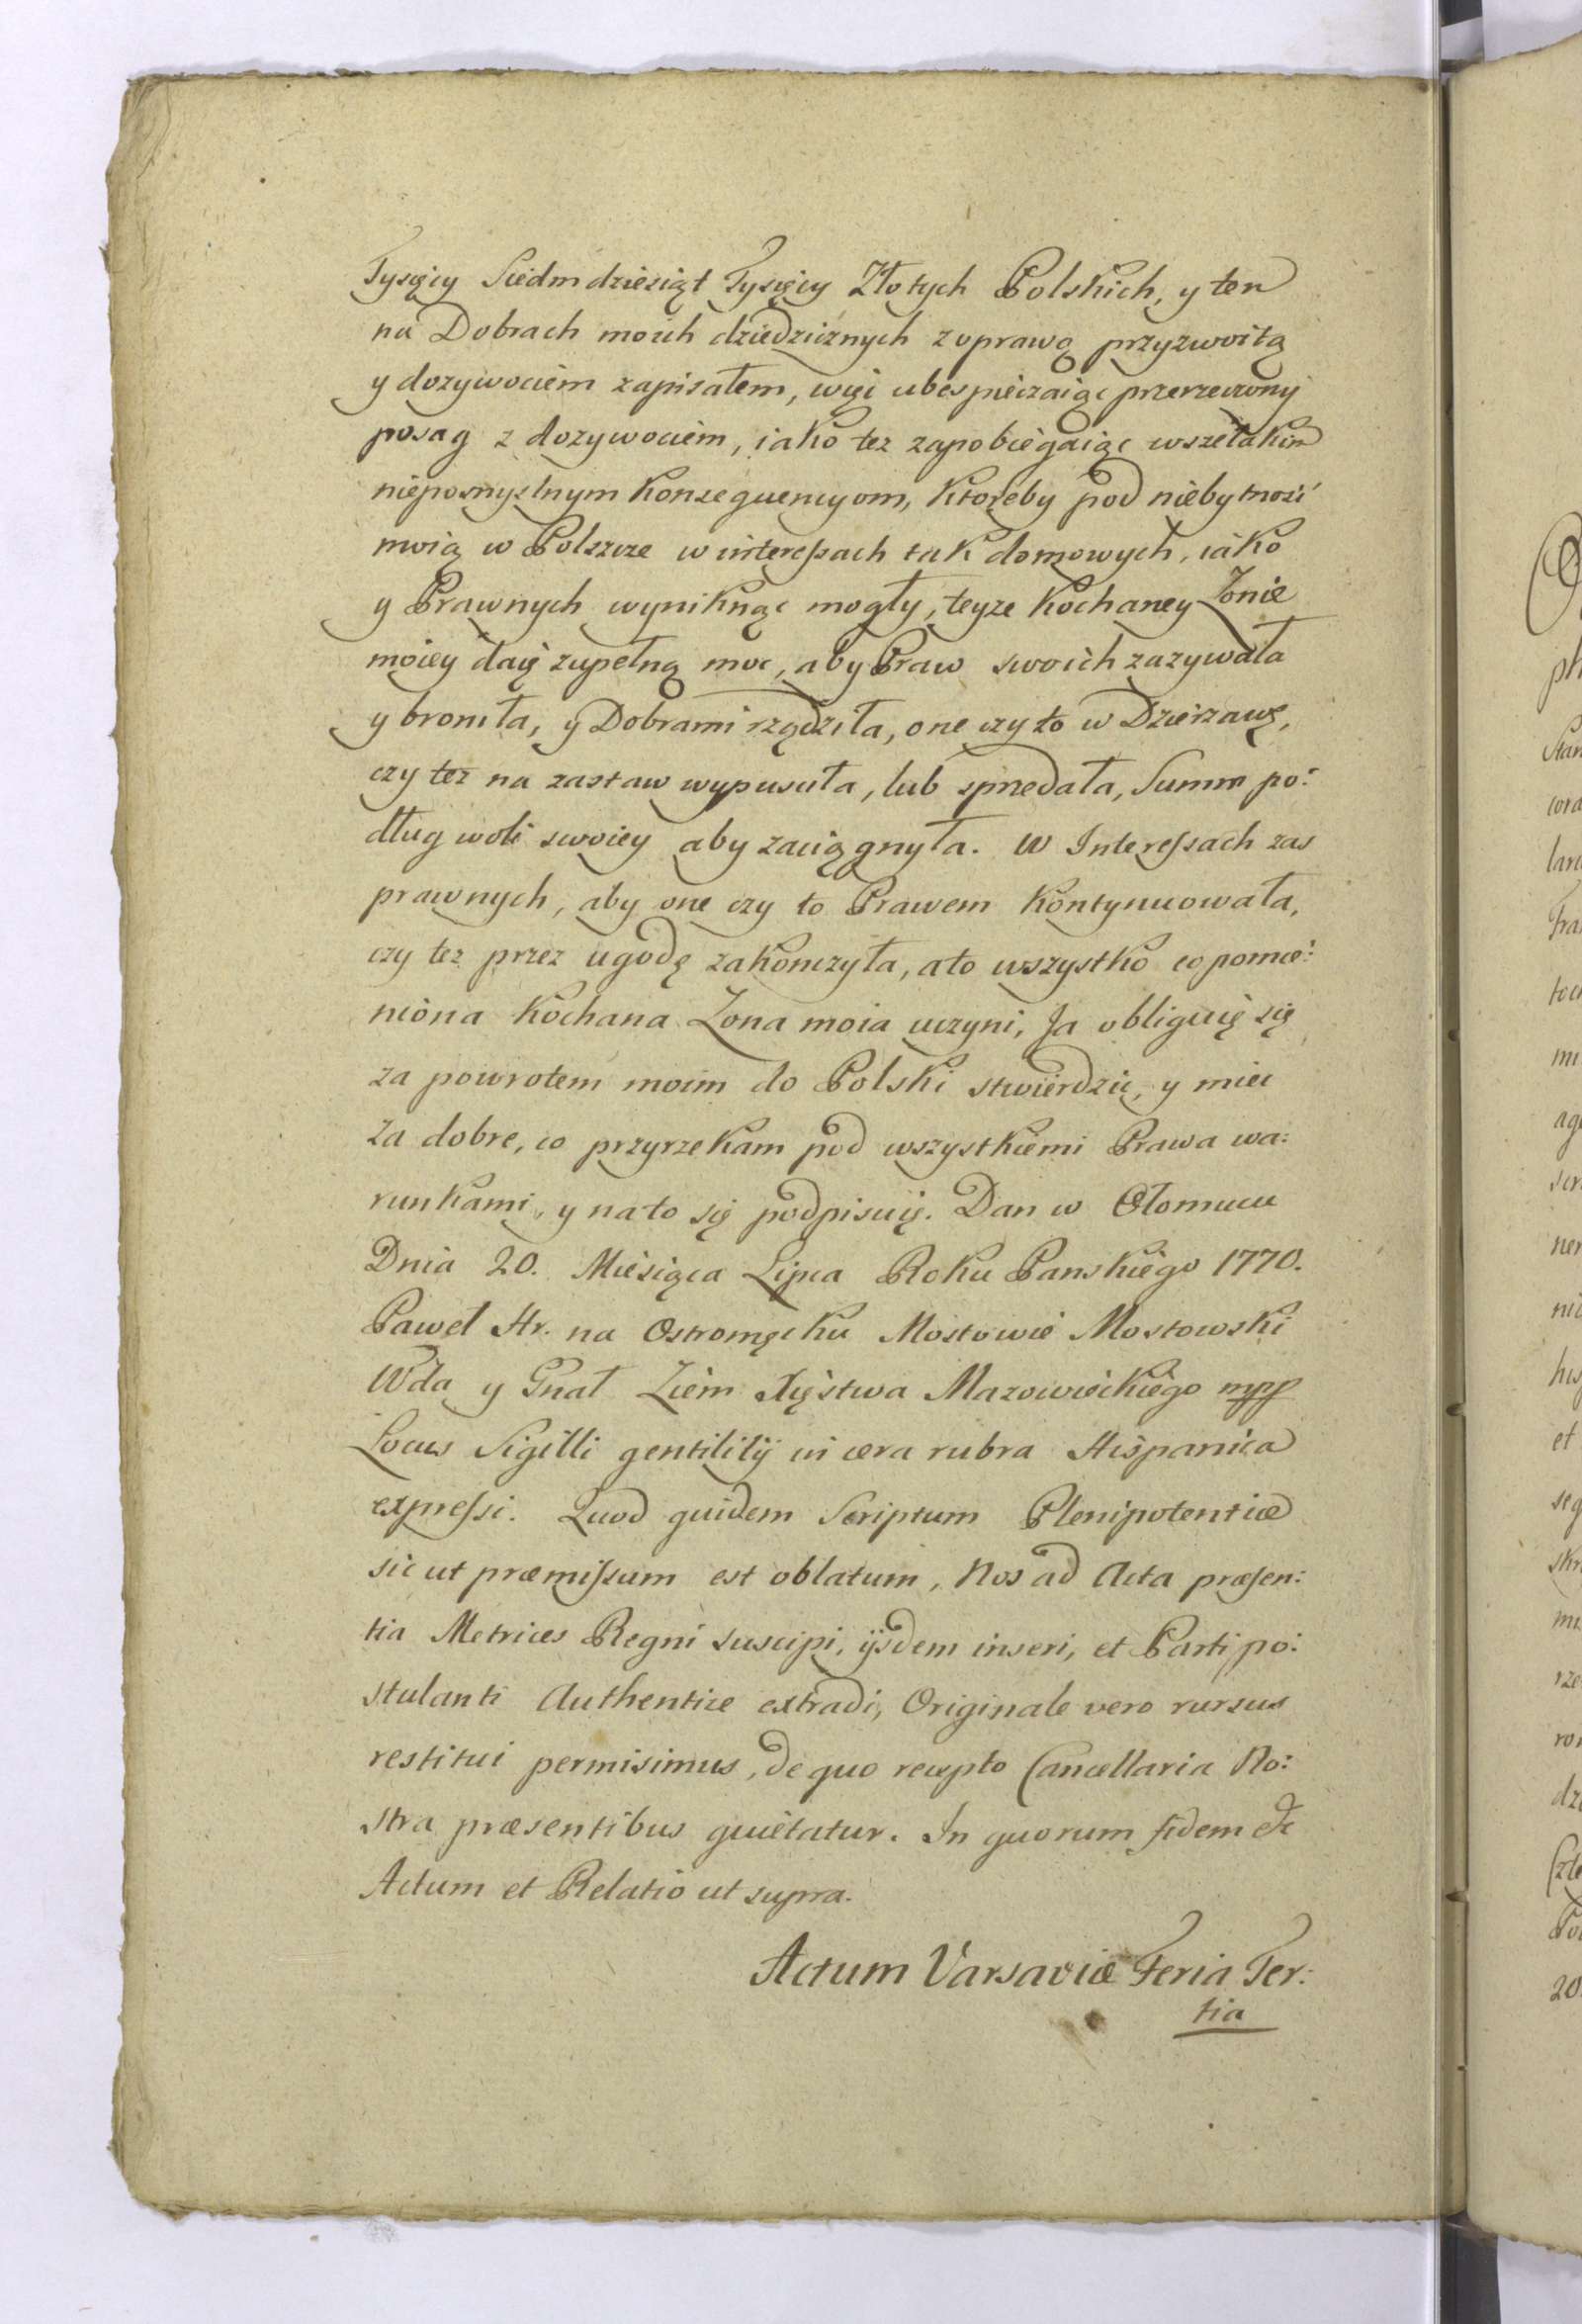 Tysięcy Siedmdziesiąt Tysięcy Złotych Polskich, y ten
na Dobrach moich dziedzicznych z oprawą przyzwoitą
y dozywociem zapisałem, więc ubespieczaiąc przerzeczony
posag z dozywociem, iako tez zapobiegaiąc wszelakim
niepomyslnym Konsequencyom, Ktoreby pod niebytnosć
moią w Polszcze w interessach tak domowych, iako
y Prawnych wyniknąc mogły, teyze Kochaney Zonie
moiey daię zupełną moc, aby Praw swoich zazywała
y broniła, y Dobrami rządziła, one czy to w Dzierzawę,
czy tez na zastaw wypusciła, lub sprzedała, Summ po:
dług woli swoiey aby zaciągnyła. W Interessach zas
prawnych, aby one czy to Prawem Kontynuowała,
czy tez przez ugodę zakonczyła, a to wszystko co pomie:
niona Kochana Zona moia uczyni, Ja obliguię się
za powrotem moim do Polski stwierdzic, y miec
za dobre, co przyrzekam pod wszystkiemi Prawa wa:
runkami, y na to się podpisuię. Dan w Ołomucu
Dnia 20. Miesiąca Lipca Roku Panskiego 1770.
Paweł Hr. na Ostromęcku Mostowie Mostowski
Wda y Gnał Ziem Xięstwa Mazowieckiego mpp
Locus Sigilli gentilitij in cera rubra Hispanica
expressi. Quod quidem Scriptum Plenipotentiæ
sic ut præmissum est oblatum, Nos ad Acta præsen:
tia Metrices Regni suscipi, ijsdem inseri, et Parti po:
stulanti Authentice extradi, Originale vero rursus
restitui permisimus, de quo recepto Cancellaria No:
stra præsentibus quietatur. In quorum fidem &c
Actum et Relatio ut supra.
Actum Varsaviæ Feria Ter:
tia